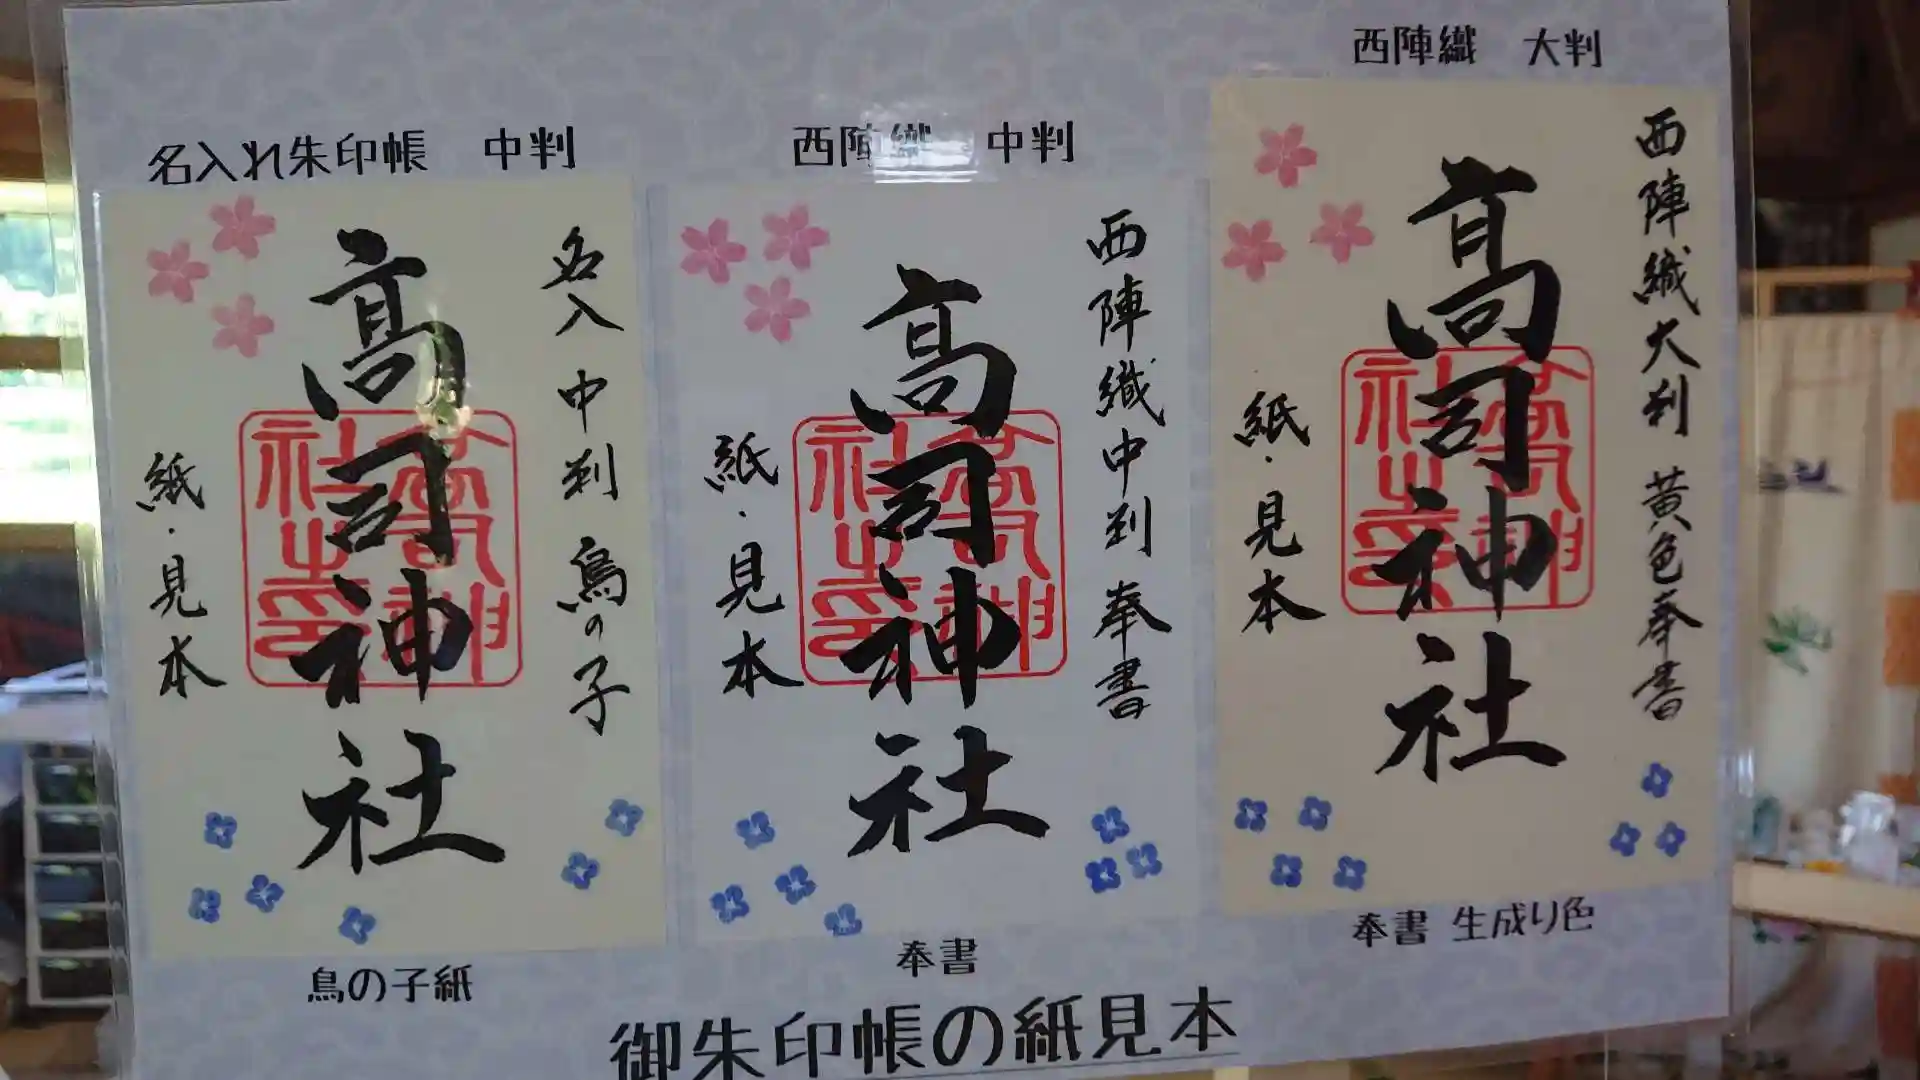 名入れ朱印帳 中判
名入 中判 鳥の子
髙司神社
紙・見本
鳥の子紙
西陣織 中判
西陣織中判 奉書
髙司神社
紙・見本
奉書
西陣織 大判
西陣織大判 黄色奉書
髙司神社
紙・見本
奉書 生成り色
御朱印帳の紙見本